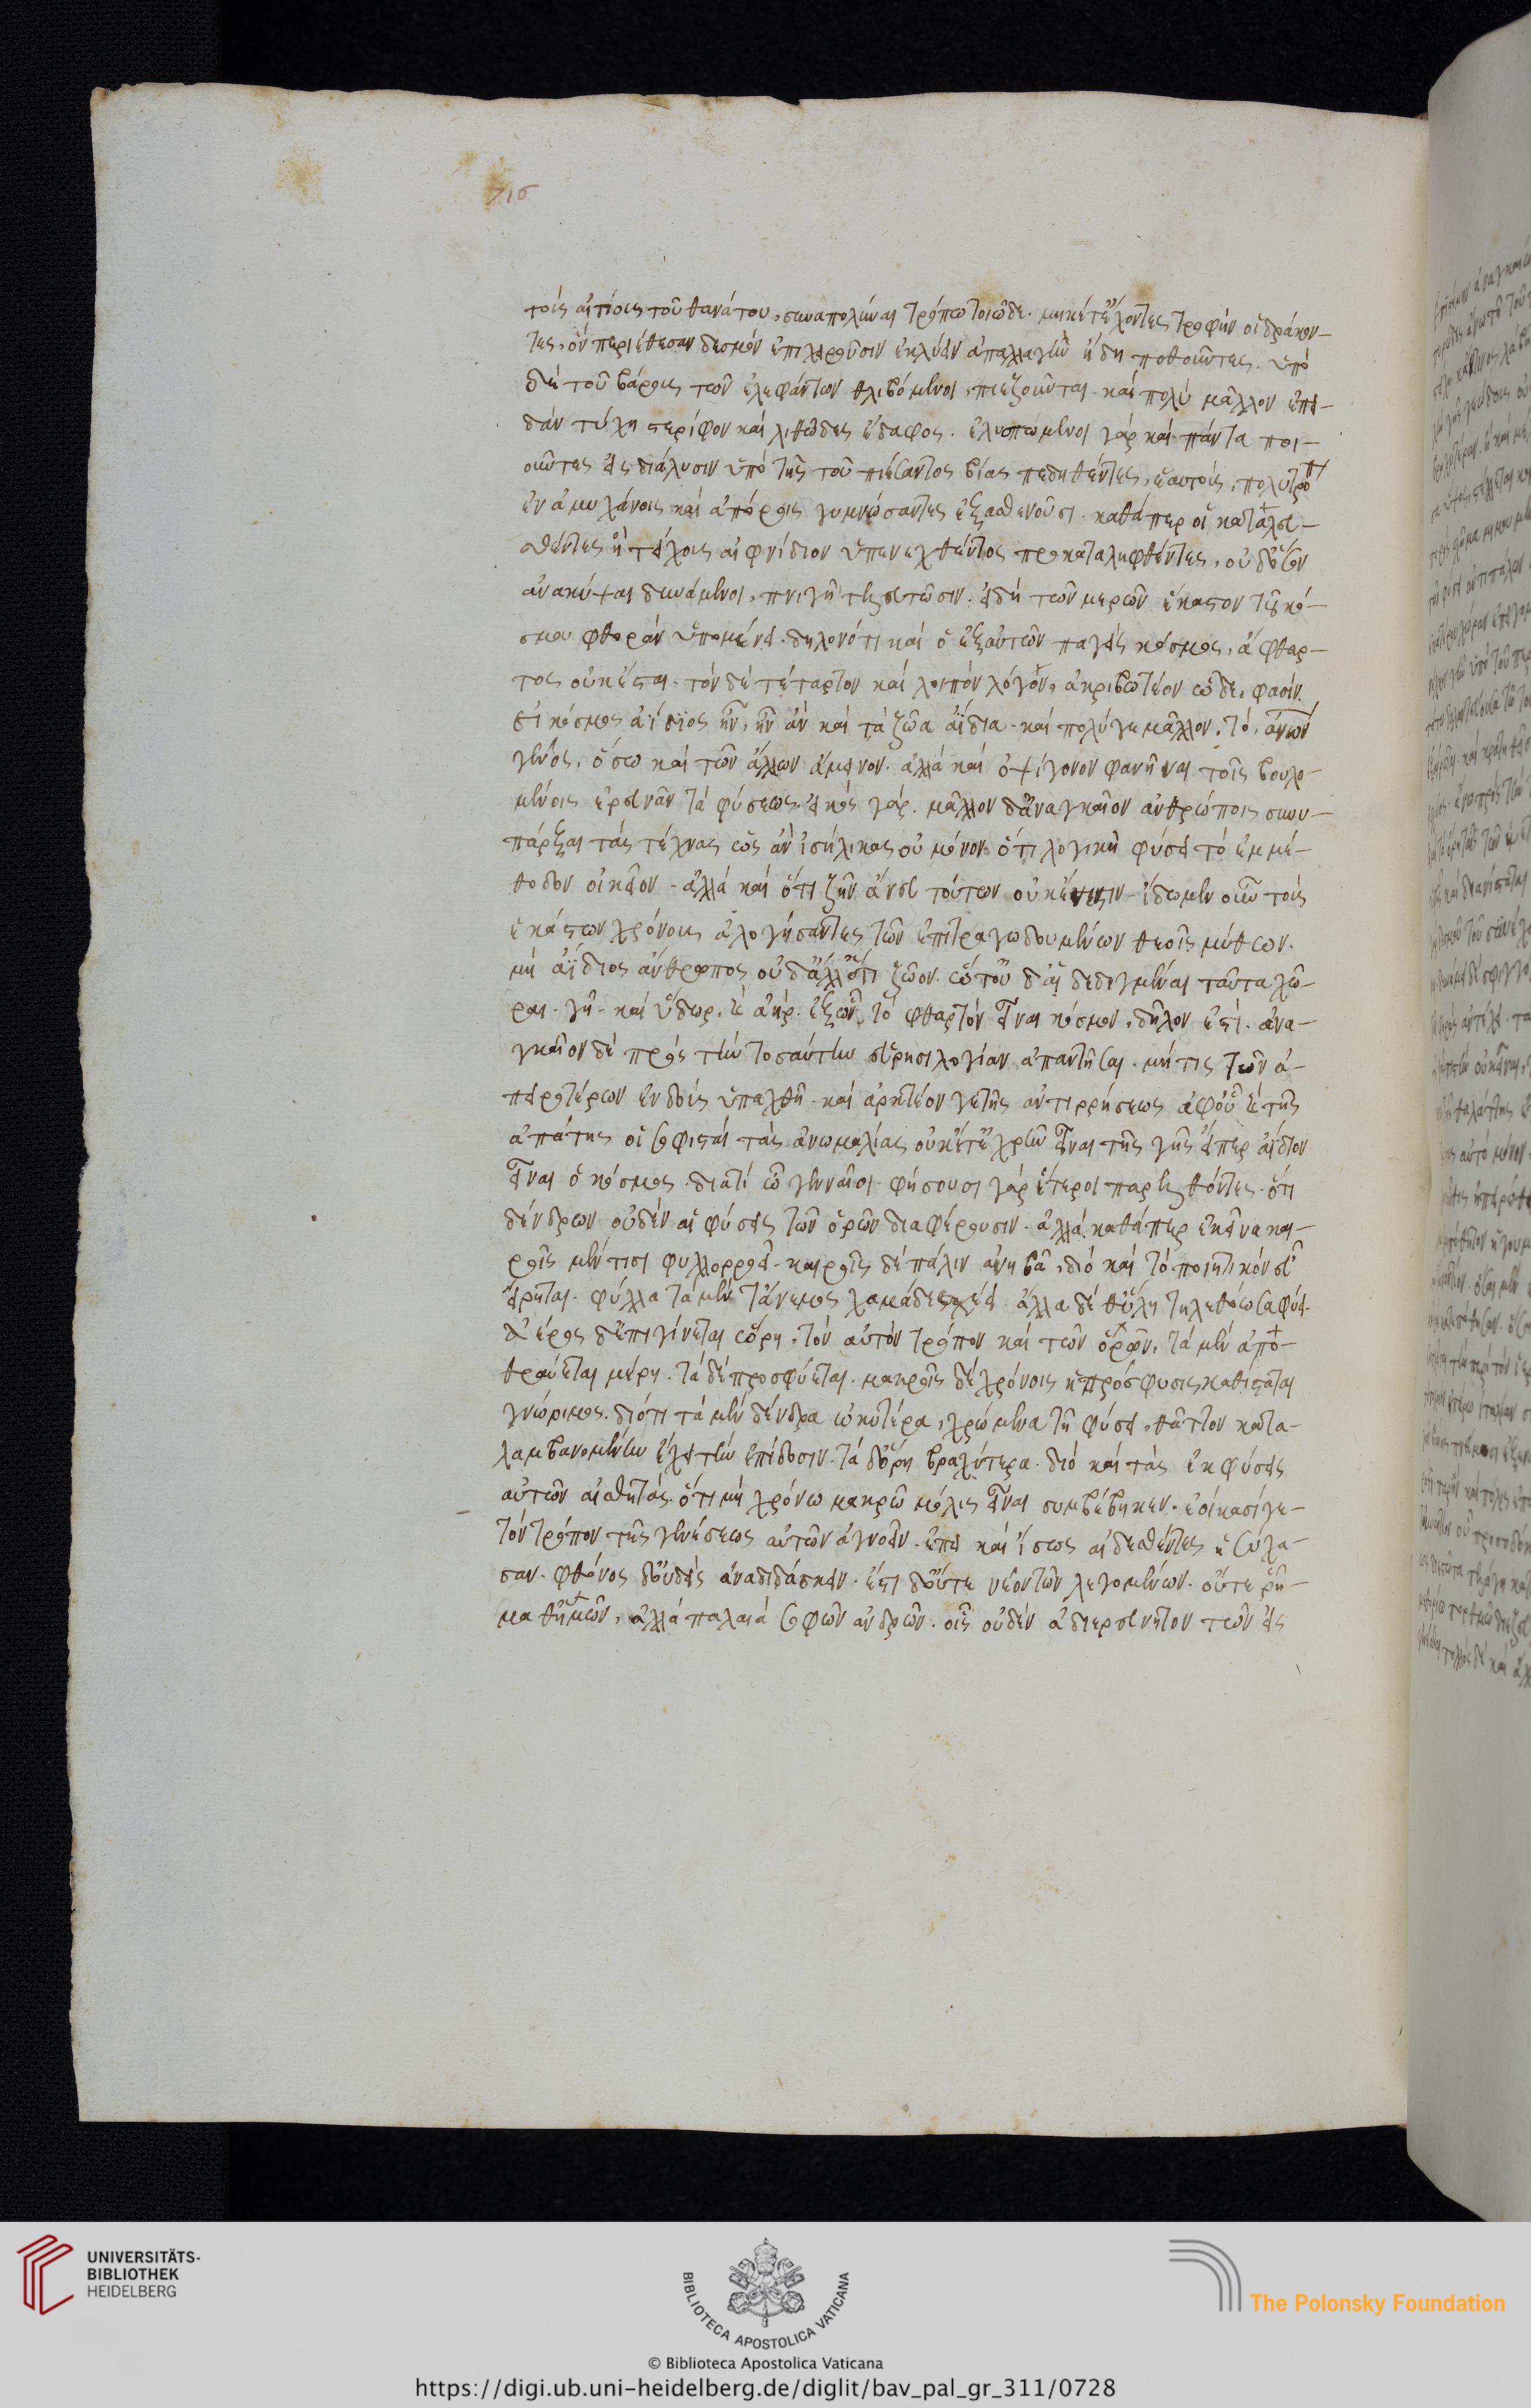 716
τοῖς αἰτίοις τοῦ θανάτου, συναπολύναι τρόπω τοιῶδε. μηκέτ' ἔχοντες τροφὴν οἱ δράκον-
τες, ὃν περιέθεσαν δεσμὸν ἐπιχειροῦσιν ἐκλύειν ἀπαλλαγὴν ἤδη ποθοῦντες. ὑπὸ
δὲ τοῦ βάρους τῶν ἐλεφάντων θλιβόμενοι, πιεζοῦνται. καὶ πολὺ μᾶλλον ἐπει-
δὰν τύχη στερίφον καὶ λιθῶδες ἔδαφος. ἐλυσπώμενοι γὰρ καὶ πάντα ποι-
οῦντες εἰς διάλυσιν ὑπὸ τῆς τοῦ πιέσαντος βίας πεδηθέντες, ἑαυτοὺς, πολυτρο
ἐν ἀμηχάνοις καὶ ἀπόροις γυμνώσαντες ἐξασθενοῦσι. καθάπερ οἱ καταλευ-
σθέντες ἢ τείχους αἰφνίδιον ὑπενεχθέντος προκαταληφθέντες, οὐδ' ὅσον
ἀνακύψαι δυνάμενοι, πνιγῆ τελευτῶσιν. εἰ δὴ τῶν μερῶν ἕκαστον τοῦ κό-
σμου φθορὰν ὑπομένει. δηλονότι καὶ ὁ ἐξ αὐτῶν παγεὶς κόσμος, ἄφθαρ-
τος οὐκ ἔσται. τὸν δὲ τέταρτον καὶ λοιπὸν λόγον, ἀκριβωτέον ὧδε, φασίν.
εἰ κόσμος ἀΐδιος ἦν, ἦν ἂν καὶ τὰ ζῶα ἀΐδια. καὶ πολύ γε μᾶλλον, τὸ, ἀνων
γένος, ὅσω καὶ τῶν ἄλλων ἄμεινον. ἀλλὰ καὶ ὀψίγονον φανῆναι τοῖς βουλο-
μένοις ἐρευνᾶν τὰ φύσεως. εἰκὸς γάρ. μᾶλλον δ' ἀναγκαῖον ἀνθρώποις συνυ-
πάρξαι τὰς τέχνας ὡς ἂν ἰσήλικας οὐ μόνον ὅτι λογικῆ φύσει τὸ ἐμμέ-
θοδον οἰκεῖον. ἀλλὰ καὶ ὅτι ζῆν ἄνευ τούτων οὐκ ἔνεστιν. ἴδωμεν οὖν τοὺς
ἑκάστων χρόνους ἀλογήσαντες τῶν ἐπιτραγωδουμένων θεοῖς μύθων.
μὴ ἀΐδιος ἄνθρωπος οὐδ' ἄλλό τι ζῶον. ὥστ' οὐδ' αἱ δεδεγμέναι ταῦτα χῶ-
ραι. γῆ. καὶ ὕδωρ. κ ἀήρ. ἐξ ὧν, τὸ φθαρτὸν εἶναι κόσμον, δῆλον ἐστί. ἀνα-
γκαῖον δὲ πρὸς τὴν τοσαύτην εὑρησιλογίαν ἀπαντῆσαι. μή τις τῶν ἀ-
πειροτέρων ἐνδοὺς ὑπαχθῆ. καὶ ἀρκτέον γε τῆς ἀντιρρήσεως ἀφ' οὗ κ τῆς
ἀπάτης οἱ σοφισταί τὰς ἀνωμαλίας οὐκέτ' ἐχρῆν εἶναι τῆς γῆς εἴπερ ἀΐδιον
εἶναι ὁ κόσμος. διατί ὦ γενναῖοι. φήσουσι γὰρ ἕτεροι παρελθόντες. ὅτι
δένδρων οὐδὲν αἱ φύσεις τῶν ὁρῶν διαφέρουσιν. ἀλλὰ καθάπερ ἐκεῖνα και-
ροῖς μέν τισι φυλλορροεῖ. καιροῖς δὲ πάλιν ἀνηβᾶ, διὸ καὶ τὸ ποιητικὸν εὖ
εἴρηται. φύλλα τὰ μέν τ' ἄνεμος χαμάδις χέει. ἄλλα δέ θ' ὕλη τηλεθόωσα φύει.
ἔαρος δ' ἐπιγίνεται ὥρη, τὸν αὐτὸν τρόπον καὶ τῶν ὀρῶν, τὰ μὲν ἀπο-
θραύεται μέρη. τὰ δὲ προσφύεται. μακροῖς δὲ χρόνοις ἡ πρόσφυσις καθίσταται
γνώριμος. διότι τὰ μὲν δένδρα ὠκυτέρα, χρώμενα τῆ φύσει, θᾶττον κατα-
λαμβανομένην ἔχει τὴν ἐπίδοσιν. τὰ δ' ὄρη βραχύτερα. διὸ καὶ τὰς ἐκφύσεις
αὐτῶν αἰσθητὰς, ὅτι μὴ χρόνω μακρῶ μόλις εἶναι συμβέβηκεν. ἐοίκασί γε
τὸν τρόπον τῆς γενέσεως αὐτῶν ἀγνοεῖν. ἐπεὶ καὶ ἴσως αἰδεσθέντες ἡσύχα-
σαν. φθόνος δ' οὐδεὶς ἀναδιδάσκειν. ἔστι δ' οὔτε νέον τῶν λεγομένων. οὔτε ῥή-
μαθ' ἡμῶν, ἀλλὰ παλαιὰ σοφῶν ἀνδρῶν. οἷς οὐδὲν ἀδιερεύνητον τῶν εἰς
UNIVERSITÄTS-
BIBLIOTHEK
HEIDELBERG
BIBLIOTECA APOSTOLICA VATICANA
The Polonsky Foundation
© Biblioteca Apostolica Vaticana
https://digi.ub.uni-heidelberg.de/diglit/bav_pal_gr_311/0728